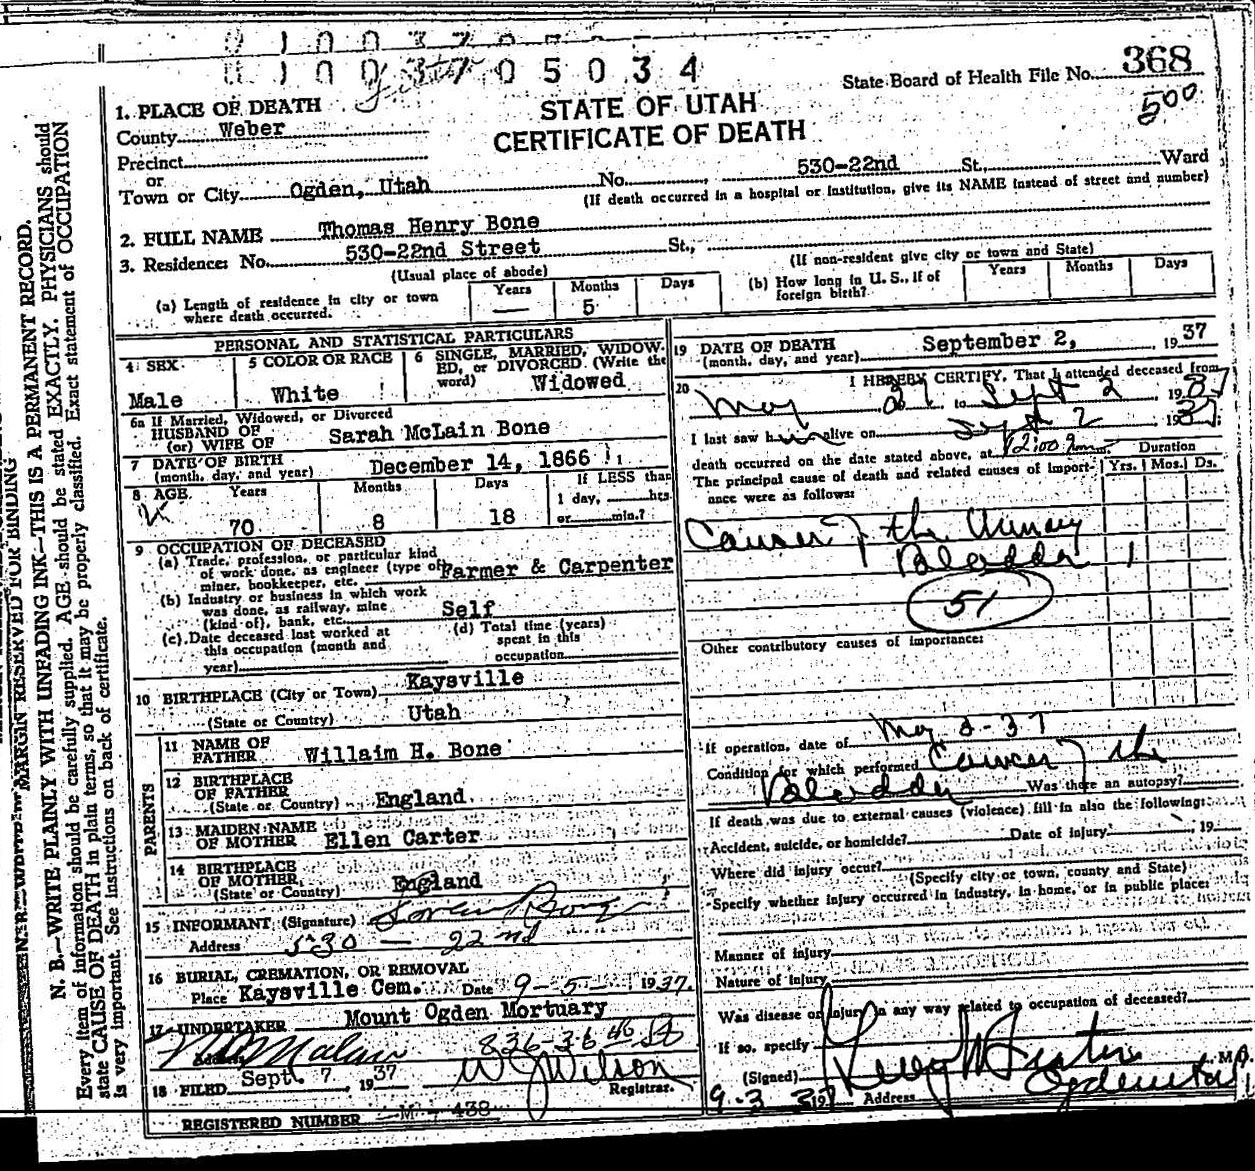 0 1 0 0 3 7 0 5 0 3 4
State Board of Health File No. 368
500
1. PLACE OF DEATH
STATE OF UTAH
CERTIFICATE OF DEATH
County Weber
Precinct
or
Town or City Ogden, Utah No. 530-22nd St., Ward
(If death occurred in a hospital or institution, give its NAME instead of street and number)
2. FULL NAME Thomas Henry Bone
3. Residence: No. 530-22nd Street St.,
(Usual place of abode)
(If non-resident give city or town and State)
(a) Length of residence in city or town where death occurred. Years — Months 5 Days
(b) How long in U. S., if of foreign birth? Years Months Days
PERSONAL AND STATISTICAL PARTICULARS
4 SEX Male
5 COLOR OR RACE White
6 SINGLE, MARRIED, WIDOWED, or DIVORCED. (Write the word) Widowed
6a If Married, Widowed, or Divorced
HUSBAND OF
(or) WIFE OF Sarah McLain Bone
7 DATE OF BIRTH
(month, day, and year) December 14, 1866
8 AGE Years 70 Months 8 Days 18 If LESS than 1 day, hrs. or min.?
9 OCCUPATION OF DECEASED
(a) Trade, profession, or particular kind of work done, as engineer (type of) miner, bookkeeper, etc. Farmer & Carpenter
(b) Industry or business in which work was done, as railway, mine (kind of), bank, etc. Self
(c) Date deceased last worked at this occupation (month and year)
(d) Total time (years) spent in this occupation
10 BIRTHPLACE (City or Town) Kaysville
(State or Country) Utah
PARENTS
11 NAME OF FATHER Willaim H. Bone
12 BIRTHPLACE OF FATHER (State or Country) England
13 MAIDEN NAME OF MOTHER Ellen Carter
14 BIRTHPLACE OF MOTHER (State or Country) England
15 INFORMANT (Signature) Bone
Address 530 — 22nd
16 BURIAL, CREMATION, OR REMOVAL
Place Kaysville Cem. Date 9-5- 1937.
17 UNDERTAKER Mount Ogden Mortuary
Address 836-36th St
18 FILED Sept. 7, 1937 W J Wilson Registrar.
REGISTERED NUMBER M - 438
19 DATE OF DEATH
(month, day, and year) September 2, 1937
20 I HEREBY CERTIFY, That I attended deceased from
May 21 to Sept 2 1937
I last saw him alive on Sept 2 1937
death occurred on the date stated above, at 12:00 m. Duration
The principal cause of death and related causes of importance were as follows: Yrs. Mos. Ds.
Cancer of the Urinary
Bladder 1
51
Other contributory causes of importance:
If operation, date of May 3-37
Condition for which performed Cancer of the
Bladder Was there an autopsy?
If death was due to external causes (violence) fill in also the following:
Accident, suicide, or homicide? Date of injury 19
Where did injury occur?
(Specify city or town, county and State)
Specify whether injury occurred in industry, in home, or in public place:
Manner of injury
Nature of injury
Was disease or injury in any way related to occupation of deceased?
If so, specify
(Signed) M.D.
9-3-37 19 Address Ogden Utah
MARGIN RESERVED FOR BINDING
N. B.—WRITE PLAINLY WITH UNFADING INK—THIS IS A PERMANENT RECORD.
Every item of information should be carefully supplied. AGE should be stated EXACTLY. PHYSICIANS should
state CAUSE OF DEATH in plain terms, so that it may be properly classified. Exact statement of OCCUPATION
is very important. See instructions on back of certificate.